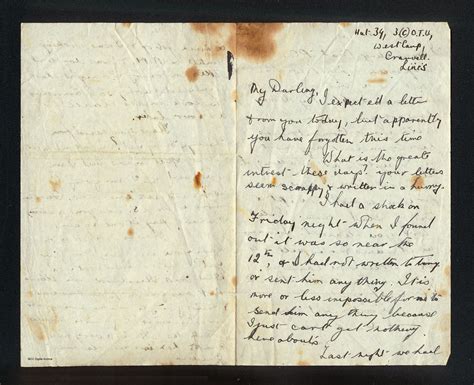 Hut. 39, 3(C) O.T.U,
West Camp,
Cranwell.
Lincs
My Darling,
I expected a letter
from you today, but apparently
you have forgotten this time
What is the greate
intrest these days? your letters
seem scrappy & written in a hurry.
I had a shock on
Friday night when I found
out it was so near the
12th, & I had not written to
or sent him any thing. It is
more or less impossible for me to
send him any thing because
I just cant get nothing
here abouts.
Last night we had